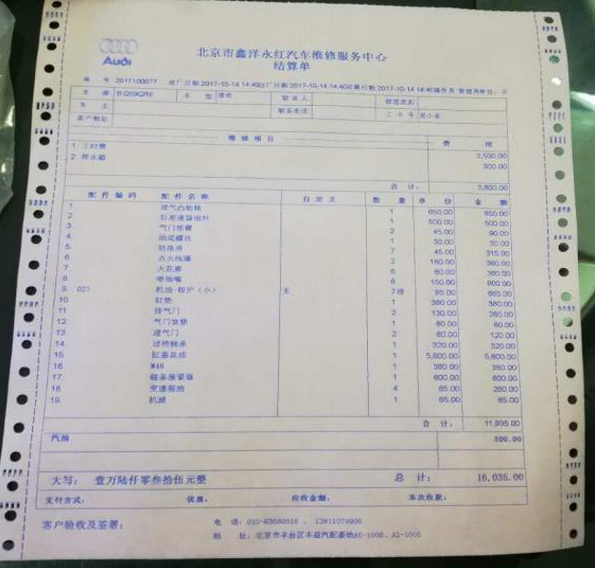 Audi
北京市鑫洋永红汽车维修服务中心
结算单
编 号 2017100077 进厂日期:2017-10-14 14:40 出厂日期:2017-10-14 14:40 结算日期:2017-10-14 14:40 操作员:管理员 单位:元
车 牌 车 型 捷达 联系人
车 主 联系电话 工 卡 号
客户地址
维修项目 费 用
1 工时费 3,500.00
2 焊水箱 300.00
合 计: 3,800.00
配件编码 配件名称 自定义 数量 单价 金额
1 进气凸轮轴 1 650.00 650.00
2 1 500.00 500.00
3 气门摇臂 2 45.00 90.00
4 1 30.00 30.00
5 防冻液 7 45.00 315.00
6 点火线圈 2 180.00 360.00
7 火花塞 6 60.00 360.00
8 喷油嘴 6 150.00 900.00
9 027 机油-毅护(小) 无 7 95.00 665.00
10 缸垫 1 380.00 380.00
11 排气门 2 130.00 260.00
12 气门室垫 1 80.00 80.00
13 进气门 2 60.00 120.00
14 过桥轴承 1 320.00 320.00
15 缸盖总成 1 5,600.00 5,600.00
16 1 380.00 380.00
17 链条涨紧器 1 600.00 600.00
18 变速箱油 4 65.00 260.00
19 机滤 1 65.00 65.00
合 计: 11,935.00
汽油 300.00
大写: 壹万陆仟零叁拾伍元整 总 计: 16,035.00
支付方式: 优惠: 应收金额: 本次收款:
客户验收及签署:
电 话: 010-83680616 、 13911079906
地 址: 北京市丰台区丰益汽配基地A0-1008、A2-1005